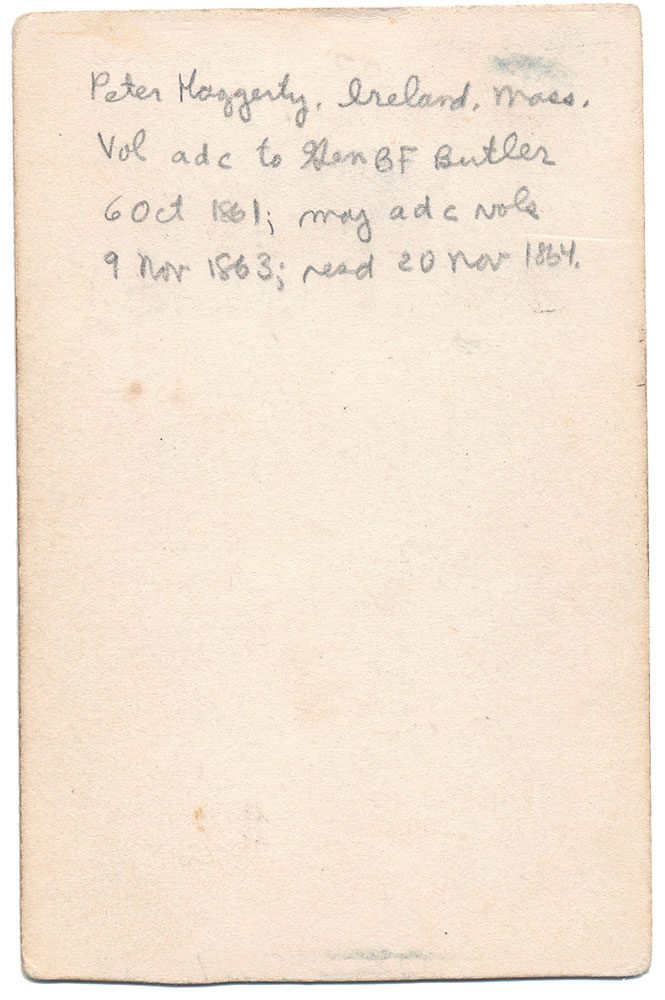 Peter Haggerty, Ireland, Mass.
Vol adc to Gen BF Butler
6 Oct 1861; maj adc vols
9 Nov 1863; resd 20 Nov 1864.